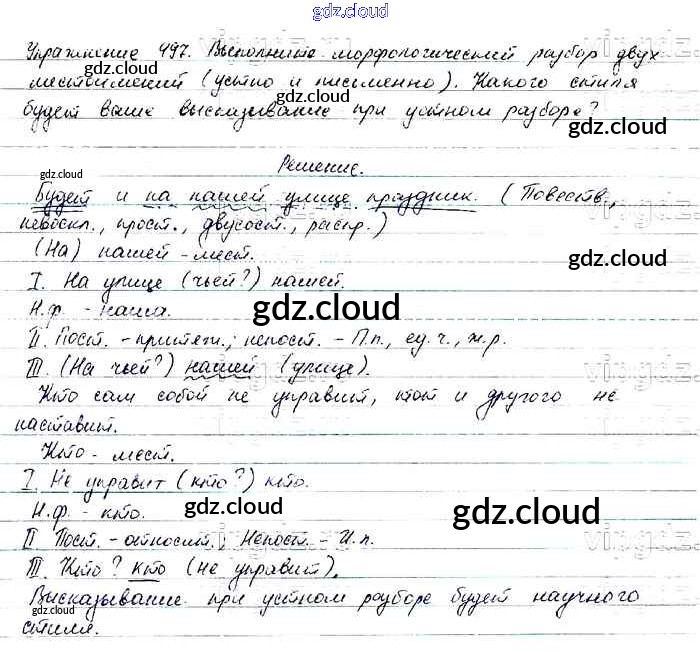 gdz.cloud
Упражнение 497. Выполните морфологический разбор двух
местоимений (устно и письменно). Какого стиля
будет ваше высказывание при устном разборе?
Решение.
Будет и на нашей улице праздник. (Повеств.,
невоскл., прост., двусост., распр.)
(На) нашей - мест.
I. На улице (чьей?) нашей.
Н.ф. - наша.
II. Пост. - притяж.; непост. - П.п., ед.ч., ж.р.
III. (На чьей?) нашей (улице).
Кто сам собой не управит, тот и другого не
наставит.
Кто - мест.
I. Не управит (кто?) кто.
Н.ф. - кто.
II Пост. - относит.; Непост. - И.п.
III. Кто? кто (не управит).
Высказывание при устном разборе будет научного
стиля.